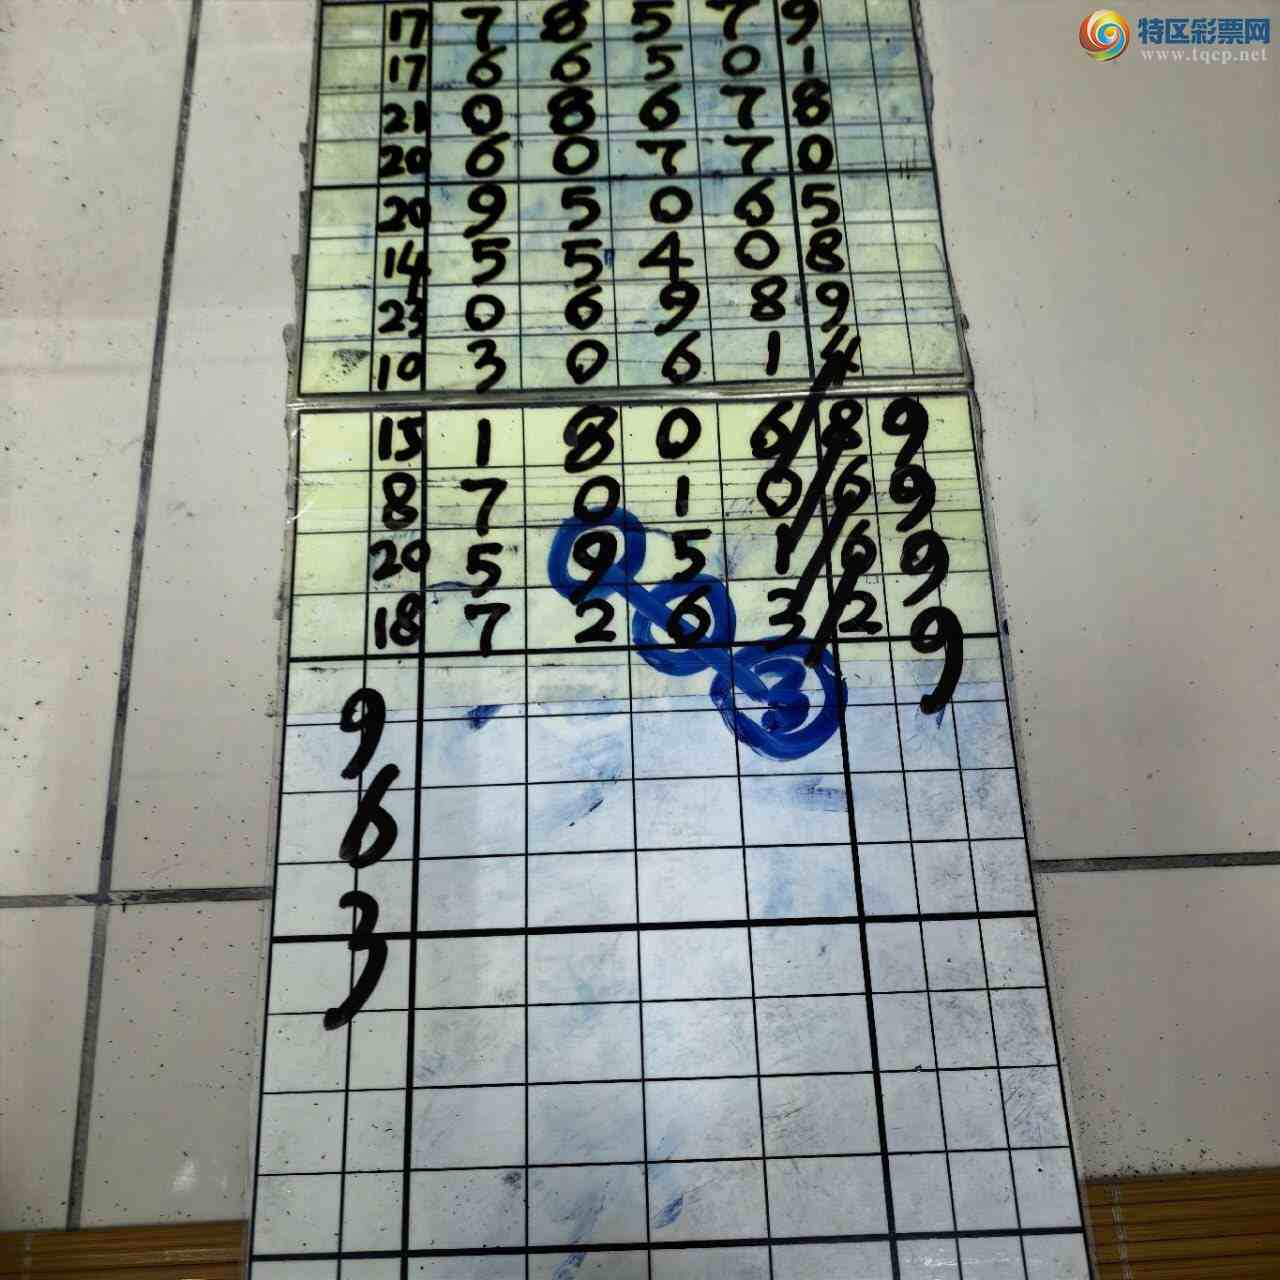 特区彩票网
www.tqcp.net
17 7 8 5 7 9
17 6 6 5 0 1
21 0 8 6 7 8
20 6 0 7 7 0
20 9 5 0 6 5
14 5 5 4 0 8
23 0 6 9 8 9
10 3 0 6 1 4
15 1 8 0 6 8 9
8 7 0 1 0 6 9
20 5 9 5 1 6 9
18 7 2 6 3 2 9
3
9
6
3